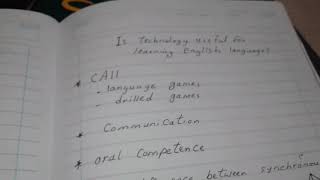 Is Technology useful for
learning English language?
* CAll
- language games
- drilled games
* Communication
* oral competence
between synchronou